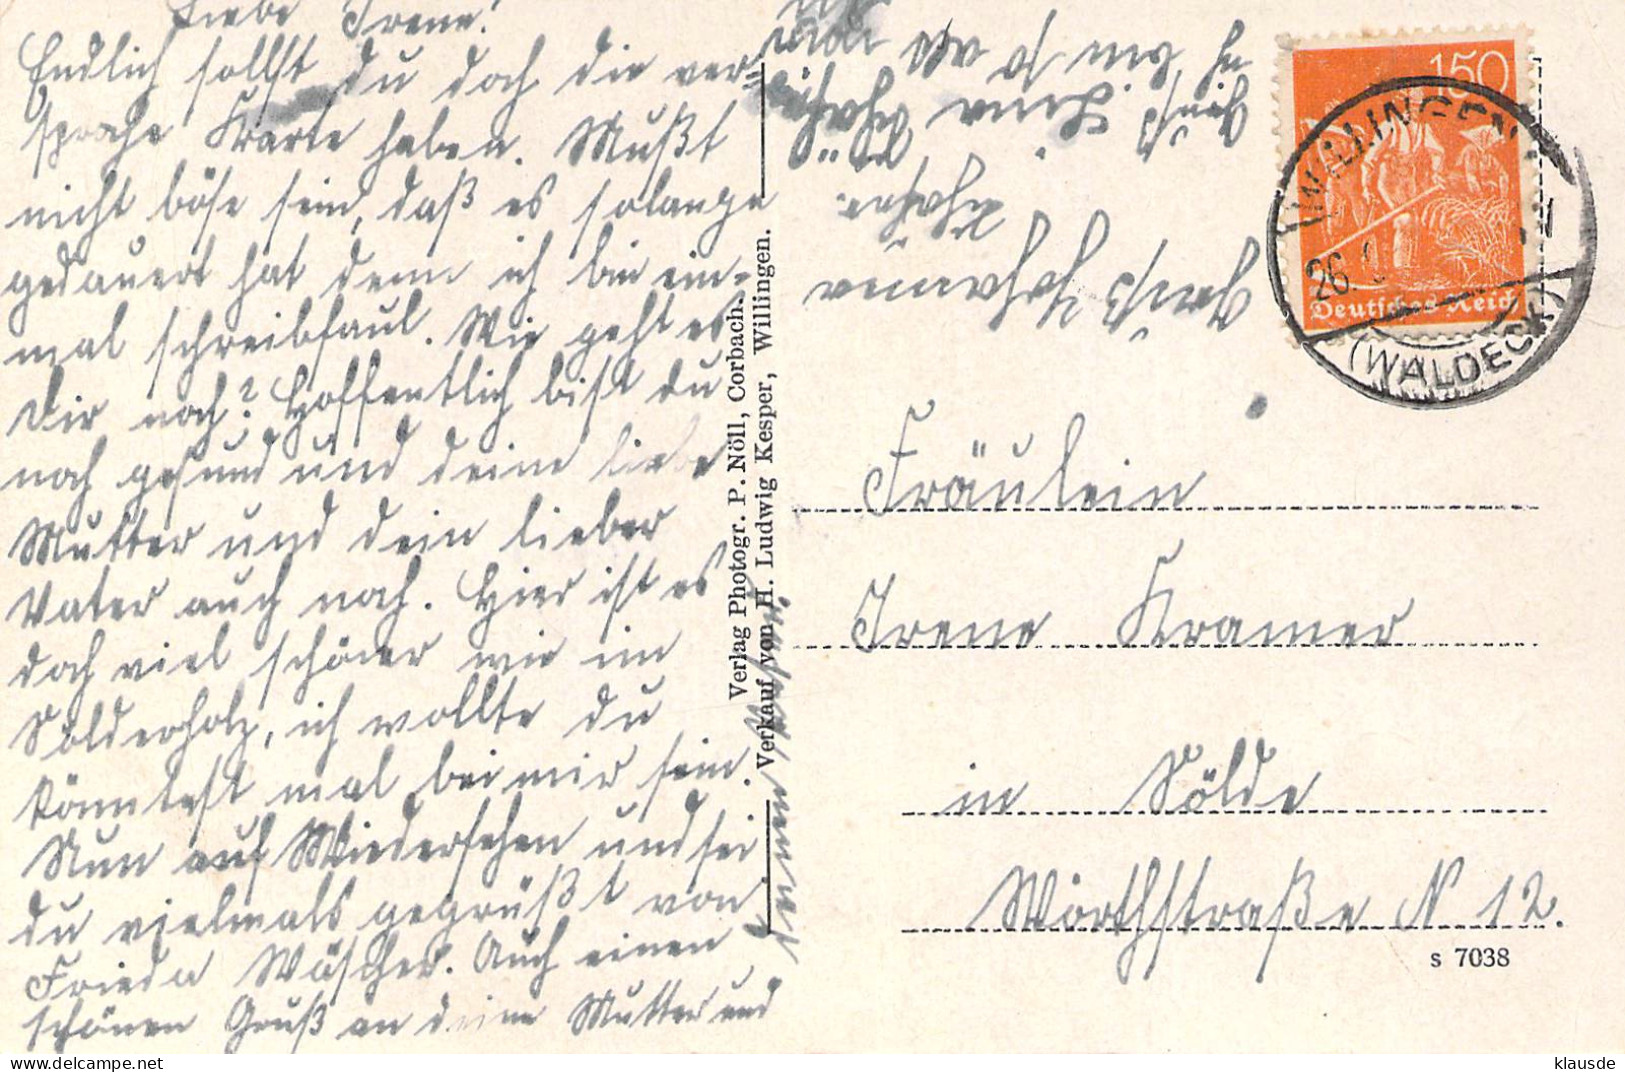 Liebe Irene!
Endlich sollst du doch die ver-
sproche Karte haben. Mußt
nicht böse sein, daß es solange
gedauert hat denn ich bin ein-
mal schreibfaul. Wie geht es
Dir noch? Hoffentlich bist du
noch gesund und deine liebe
Mutter und dein lieber
Vater auch noch. Hier ist es
doch viel schöner wie im
Sölderholz, ich wollte du
könntest mal bei mir sein.
Nun auf Wiedersehen und sei
du vielmals gegrüßt von
Frieda Wäscher. Auch einen
schönen Gruß an deine Mutter und
Verlag Photogr. P. Nöll, Corbach.
Verkauf von H. Ludwig Kesper, Willingen.
150
Deutsches Reich
WILLINGEN
26.
(WALDECK)
Fräulein
Irene Kramer
in Sölde
Wörthstraße N 12.
s 7038
klausde